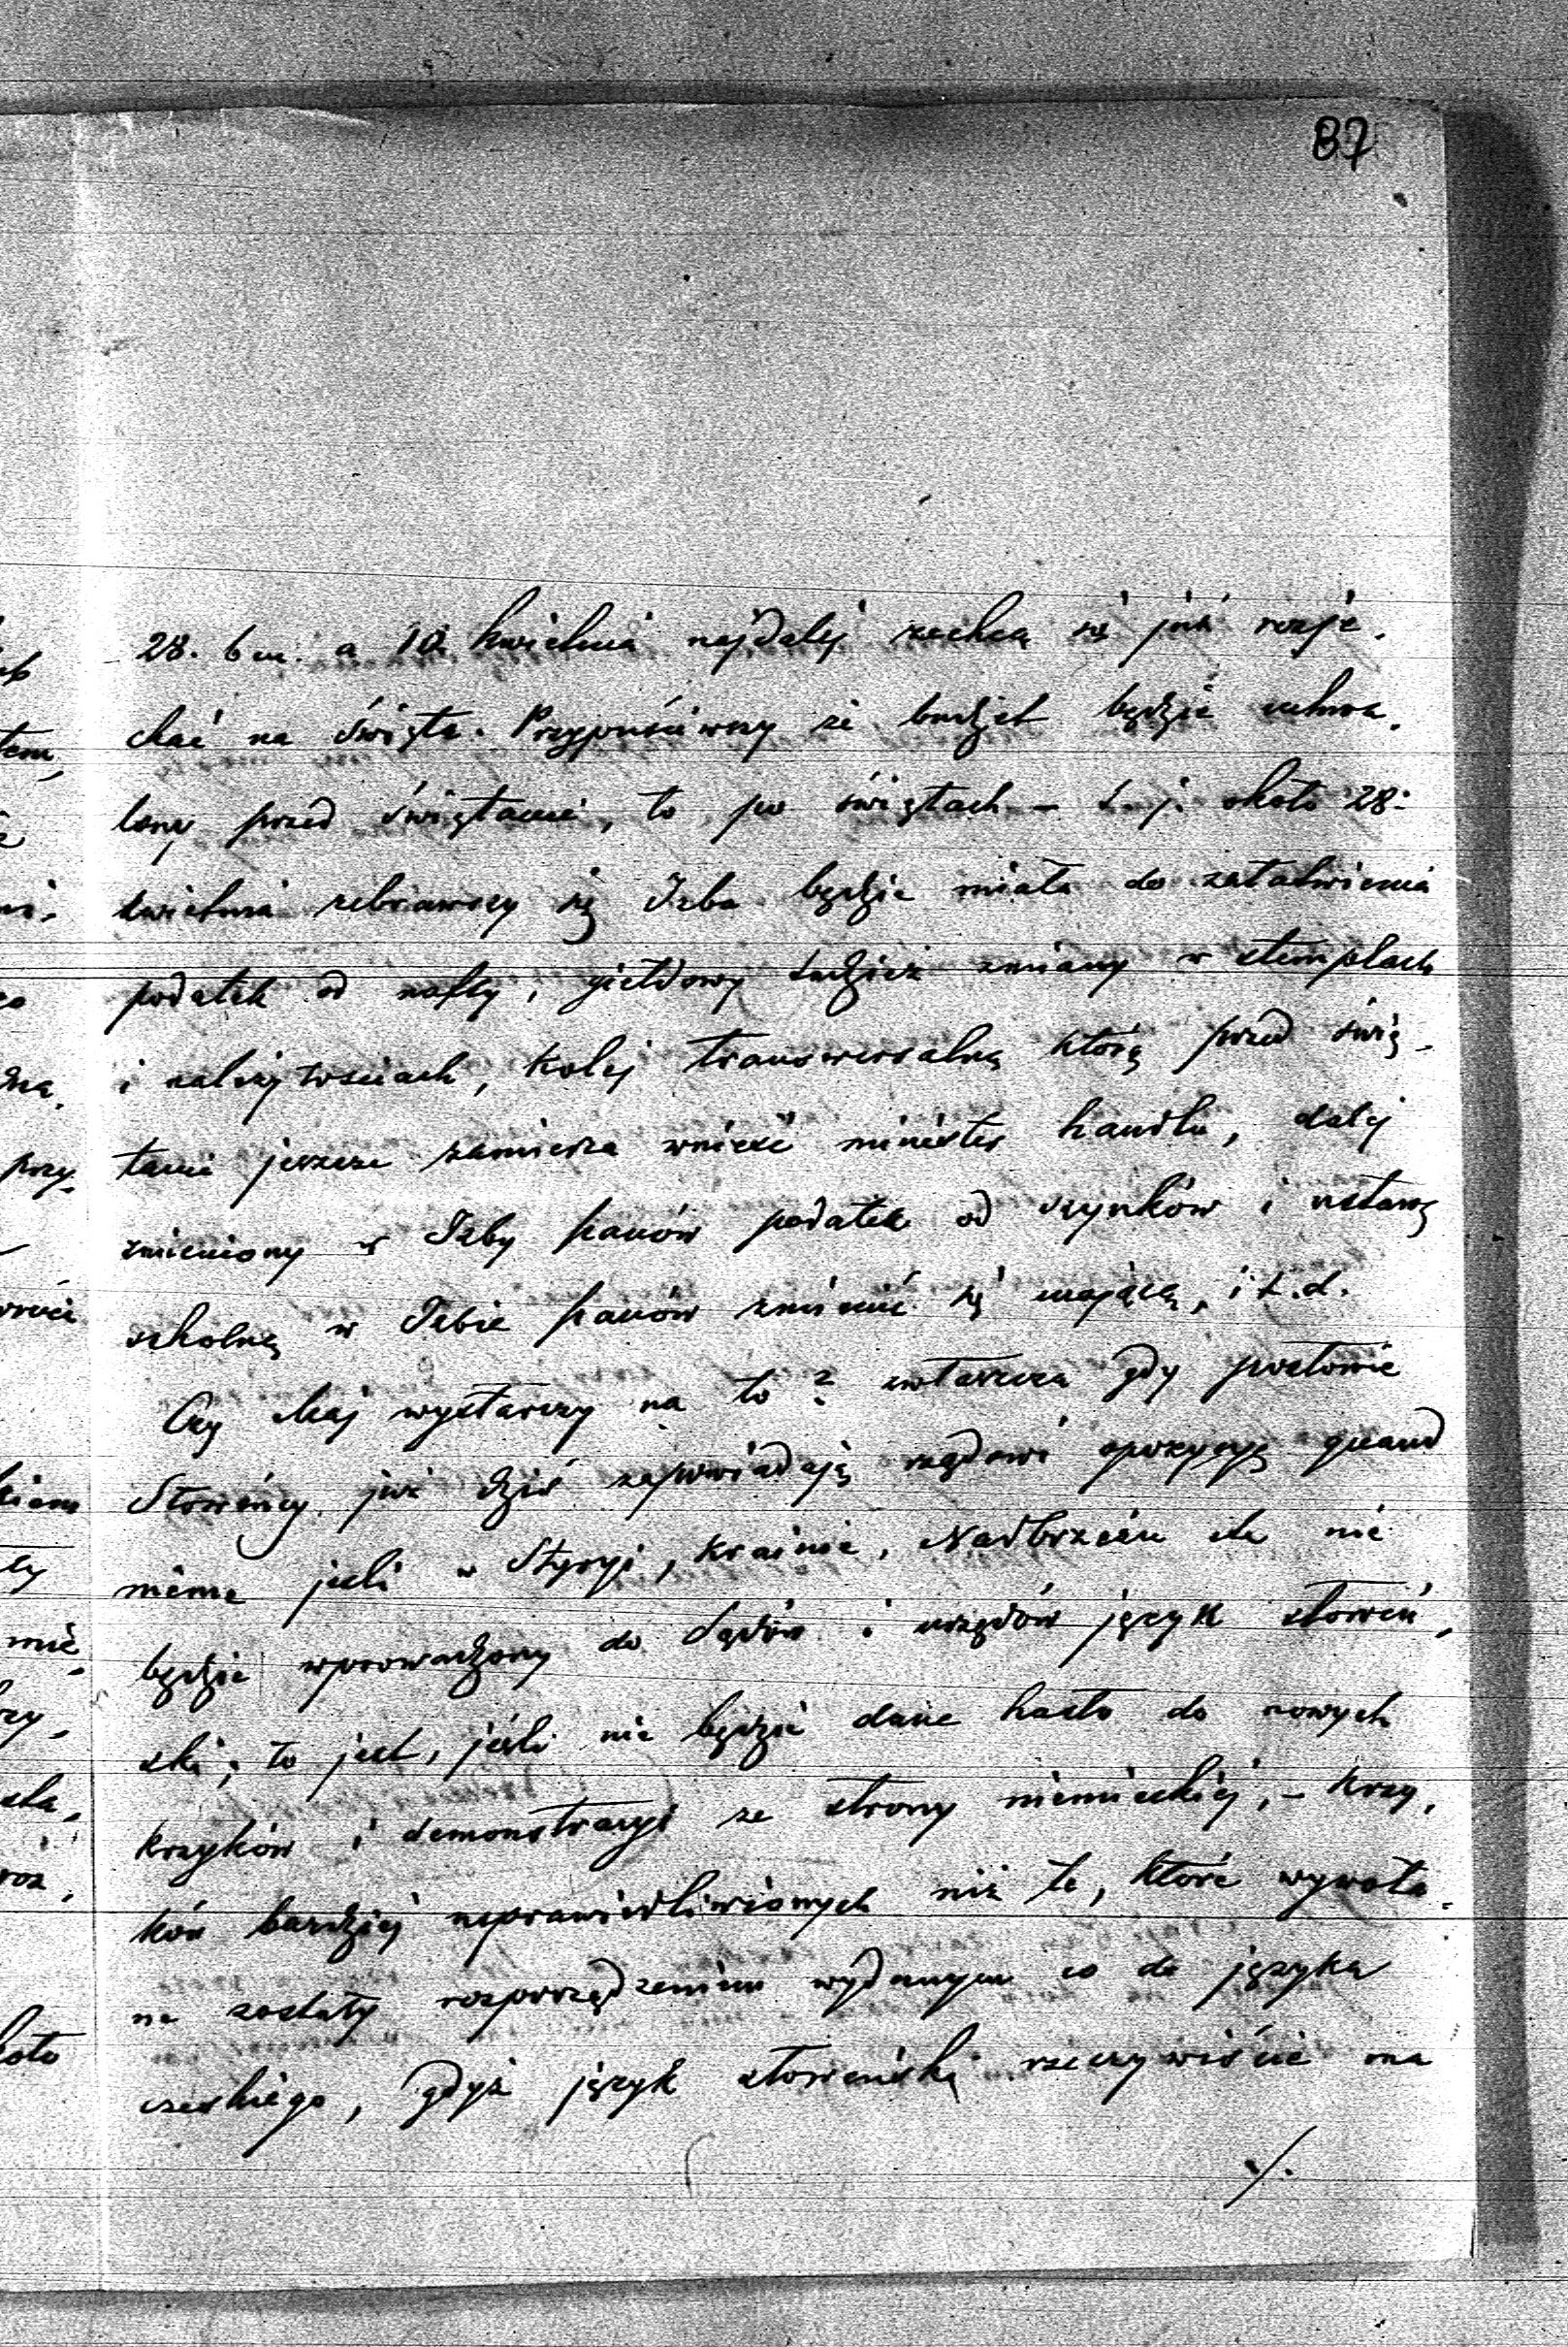 87
28. b m. a 10 kwietnia najdalej zechcą się już rozje-
chać na święta. Przypuśćiwszy że budżet będzie uchwa-
lony przed świętami, to po świętach – t. j. około 28.
kwietnia zebrawszy się Izba będzie miała do załatwienia
podatek od nafty, giełdowy tudzież zmiany w stemplach
i należytościach, kolej transwersalną którą przed świę-
tami jeszcze zamierza wnieść minister handlu, dalej
zmieniony w Izby panów podatek od szynków i ustawę
szkolną w Izbie panów zmienić się mającą, i t. d.
Czy Maj wystarczy na to? zwłaszcza gdy posłowie
Słoweńcy już dziś zapowiadają rządowi opozycyę quand
même jeśli w Styryi, Krainie, Nadbrzeżu itd nie
będzie wprowadzony do Sądów i urzędów język słoweń-
ski; to jest, jeśli nie będzie dane hasło do nowych
krzyków i demonstracyi ze strony niemieckiej, – krzy-
ków bardziej usprawiedliwionych niż te, które wywoła-
ne zostały rozporządzeniem wydanym co do języka
czeskiego, gdyż język słoweński rzeczywiście ma
./.